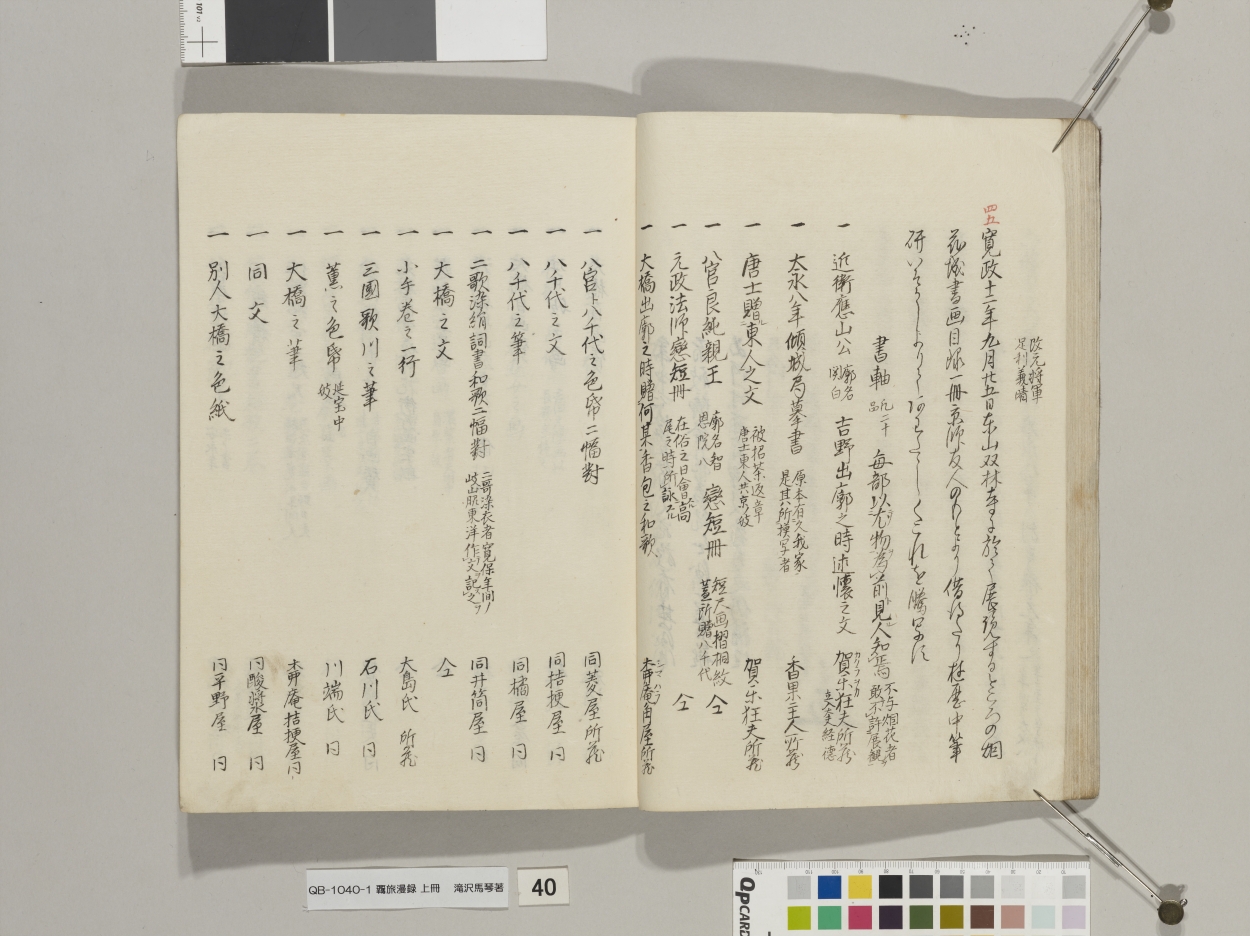 四五
寛政十二年九月廿五日東山双林寺に於て展観するところの烟
花城書画目録一冊京師友人のもとより借得たり 中筆
研いそがしきよりしてこれを謄写す
改元将軍
足利義晴
書軸 凡二十 毎部以尤物為前見人知焉 不与烟花者
敢不許展観
一 近衛應山公 廓名
関白 吉野出廓之時述懐之文 賀楽狂夫所蔵
一 大永八年傾城局墓書 原本有久我家
是其所摸写者 香果主人所蔵
一 唐士贈東人之文 被招茶返章
唐士東人共京妓 賀楽狂夫所蔵
一 八官良純親王 廓名智
恩院八 戀短冊 短尺画摺桐紋
蓋所贈八千代 仝
一 元政法師戀短冊 在俗之日會高
尾之時所詠 仝
一 大橋出廓之時贈何某香包之和歌 角屋所蔵
一 八官ト八千代之色帋二幅對 同菱屋所蔵
一 八千代之文 同桔梗屋 同
一 八千代之筆 同橘屋 同
一 二歌染絹詞書和歌二幅對 二哥染衣者寛保年間ノ
岐山服東洋作文記之 同井筒屋 同
一 大橋之文 仝
一 小手巻之一行 大島氏 所蔵
一 三國歌川之筆 石川氏 同
一 薫之色帋 延宝中
妓 川端氏 同
一 大橋之筆 桔梗屋同
一 同文 同酸漿屋 同
一 別人大橋之色紙 同平野屋 同
QB-1040-1 羇旅漫録 上冊 滝沢馬琴著
40
QPCARD